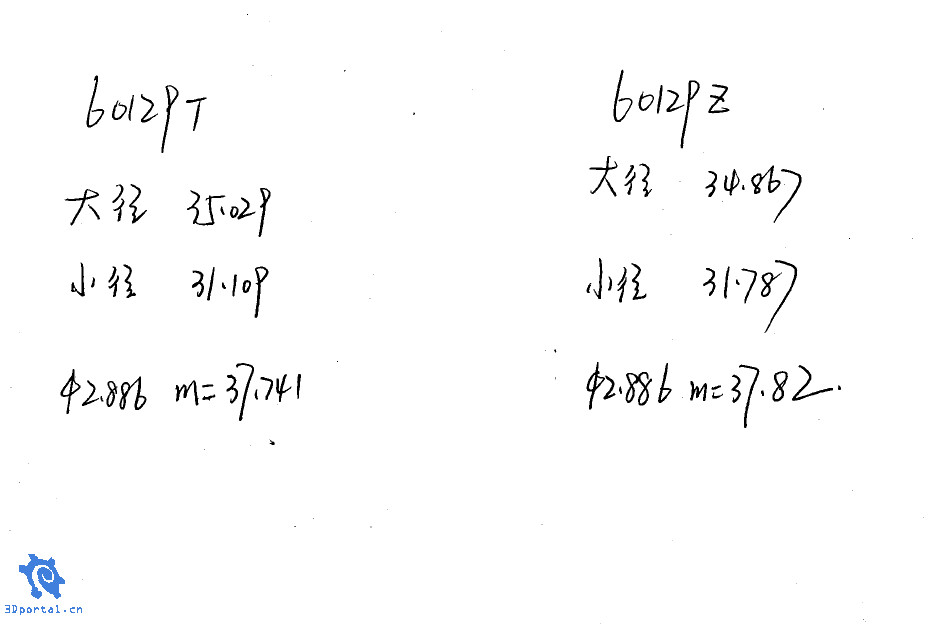 60129T
大径 35.029
小径 31.109
φ2.886 m=37.741
60129Z
大径 34.867
小径 31.787
φ2.886 m=37.82.
3Dportal.cn